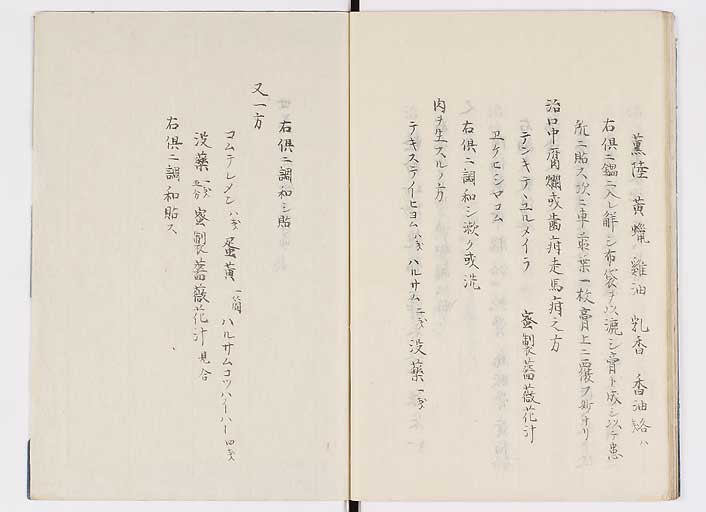 薫陸 黄蠟 雞油 乳香 香油
右倶ニ鑵ニ入レ觧シ布袋ヲ以漉シ膏ト成シ以テ患
所ニ貼ス次ニ車前葉一枚膏上ニ覆フ妙ナリ
治口中腐爛或齒疳走馬疳之方
テンキテユルメイラ 蜜製薔薇花汁
ヱケヒシヤコム
右倶ニ調和シ漱ク或洗
肉ヲ生スルノ方
テキステイヒヨム 八戔 ハルサム 二戔 没藥 一戔
右倶ニ調和シ貼
又一方
コムテレメン 八戔 蛋黄 一箇 ハルサムコツハイハー 四戔
没藥 蜜製薔薇花汁 見合
右倶ニ調和貼ス